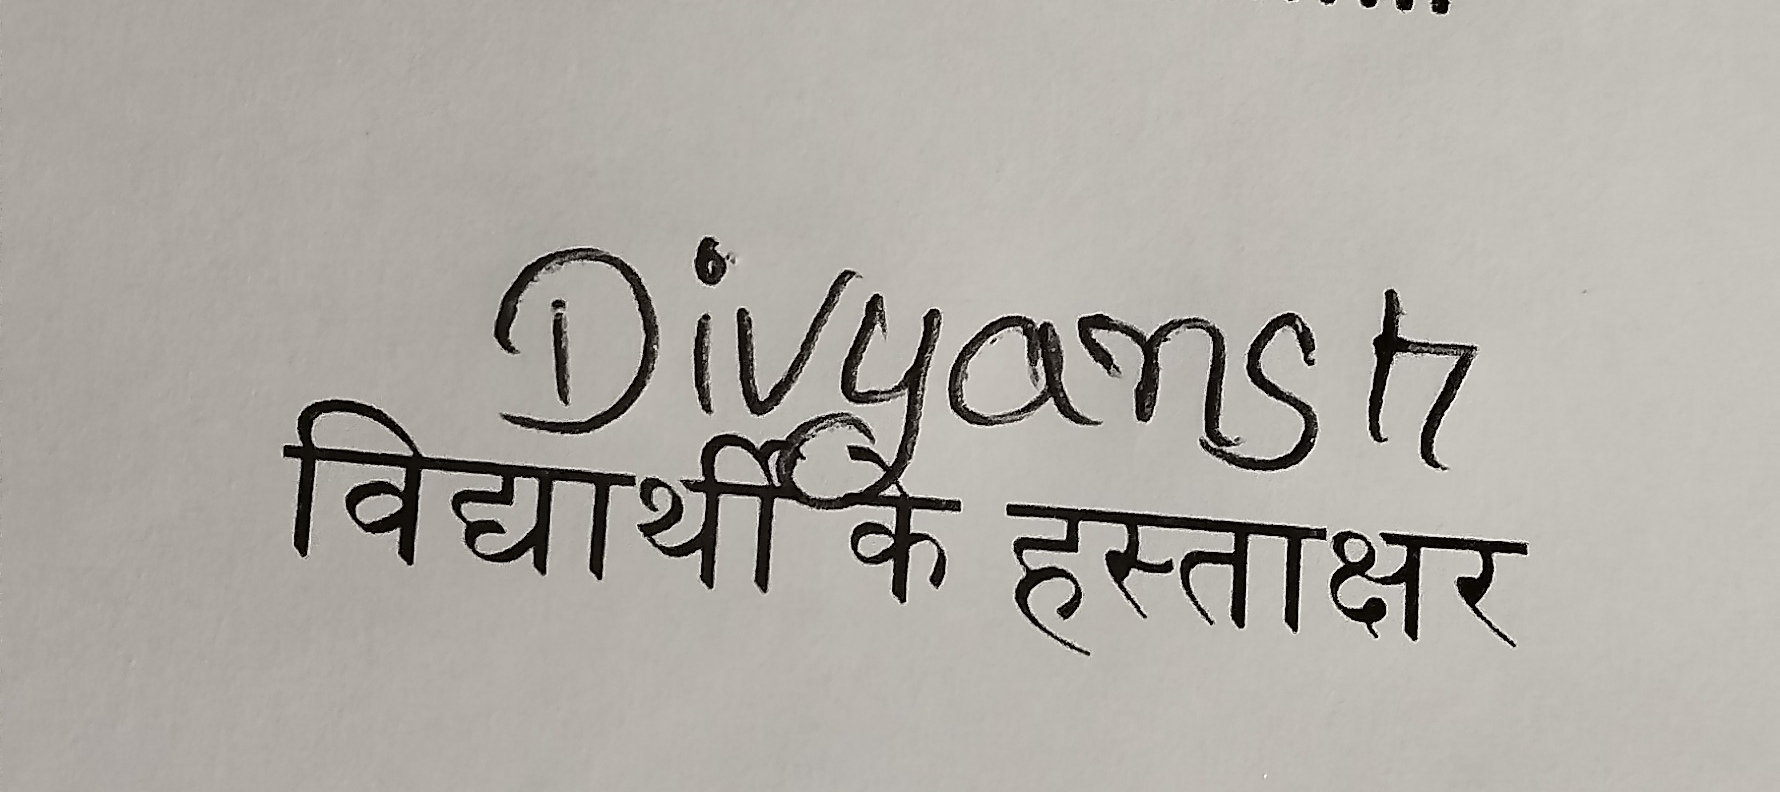 Divyansh
विद्यार्थी के हस्ताक्षर